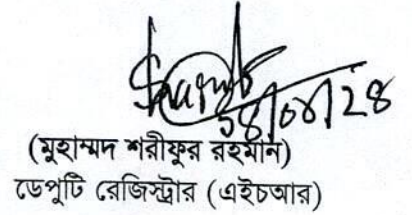 (মুহাম্মদ শরীফুর রহমান)
ডেপুটি রেজিস্ট্রার (এইচআর)